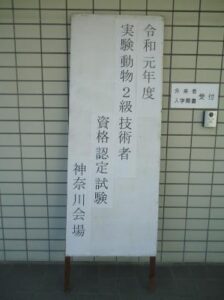 令和元年度
実験動物2級技術者
資格認定試験
神奈川会場
外来者
入学願書
受付